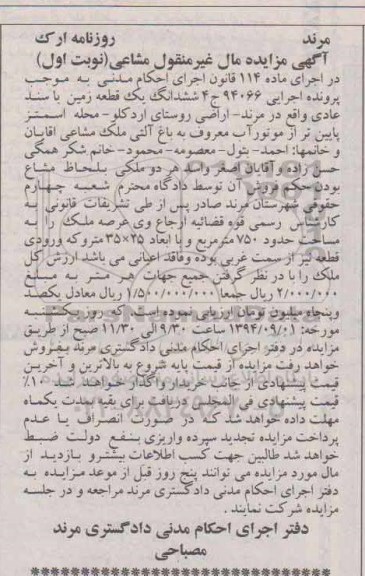 مرند روزنامه ارک
آگهی مزایده مال غیرمنقول مشاعی(نوبت اول)
در اجرای ماده ۱۱۴ قانون اجرای احکام مدنی به موجب
پرونده اجرایی ۹۴۰۶۶ ج۴ ششدانگ یک قطعه زمین با سند
عادی واقع در مرند- اراضی روستای اردکلو- محله اسمتز
پایین تر از موتورآب معروف به باغ آلتی ملک مشاعی آقایان
و خانمها: احمد- بتول- معصومه- محمود- خانم شکر همگی
حسن زاده و آقایان اصغر واحد هر دو ملکی بلحاظ مشاع
بودن حکم فروش آن توسط دادگاه محترم شعبه چهارم
حقوقی شهرستان مرند صادر پس از طی تشریفات قانونی به
کارشناس رسمی قوه قضائیه ارجاع وی عرصه ملک را به
مساحت حدود ۷۵۰ مترمربع و با ابعاد ۲۵×۳۵ متر وکه ورودی
قطعه نیز از سمت غربی بوده وفاقد اعیانی می باشد ارزش کل
ملک را با در نظر گرفتن جمیع جهات هر متر به مبلغ
۲/۰۰۰/۰۰۰ ریال جمعا ۱/۵۰۰/۰۰۰/۰۰۰ ریال معادل یکصد
وپنجاه میلیون تومان ارزیابی نموده است. که روز یکشنبه
مورخه: ۱۳۹۴/۰۹/۰۱ ساعت ۹/۳۰ الی ۱۱/۳۰ صبح از طریق
مزایده در دفتر اجرای احکام مدنی دادگستری مرند بفروش
خواهد رفت مزایده از قیمت پایه شروع به بالاترین و آخرین
قیمت پیشنهادی از جانب خریدار واگذار خواهد شد ۱۰٪
قیمت پیشنهادی فی المجلس دریافت برای بقیه بمدت یکماه
مهلت داده خواهد شد که در صورت انصراف یا عدم
پرداخت مزایده تجدید سپرده واریزی بنفع دولت ضبط
خواهد شد طالبین جهت کسب اطلاعات بیشتر و بازدید از
مال مورد مزایده می توانند پنج روز قبل از موعد مزایده به
دفتر اجرای احکام مدنی دادگستری مرند مراجعه و در جلسه
مزایده شرکت نمایند .
دفتر اجرای احکام مدنی دادگستری مرند
مصباحی